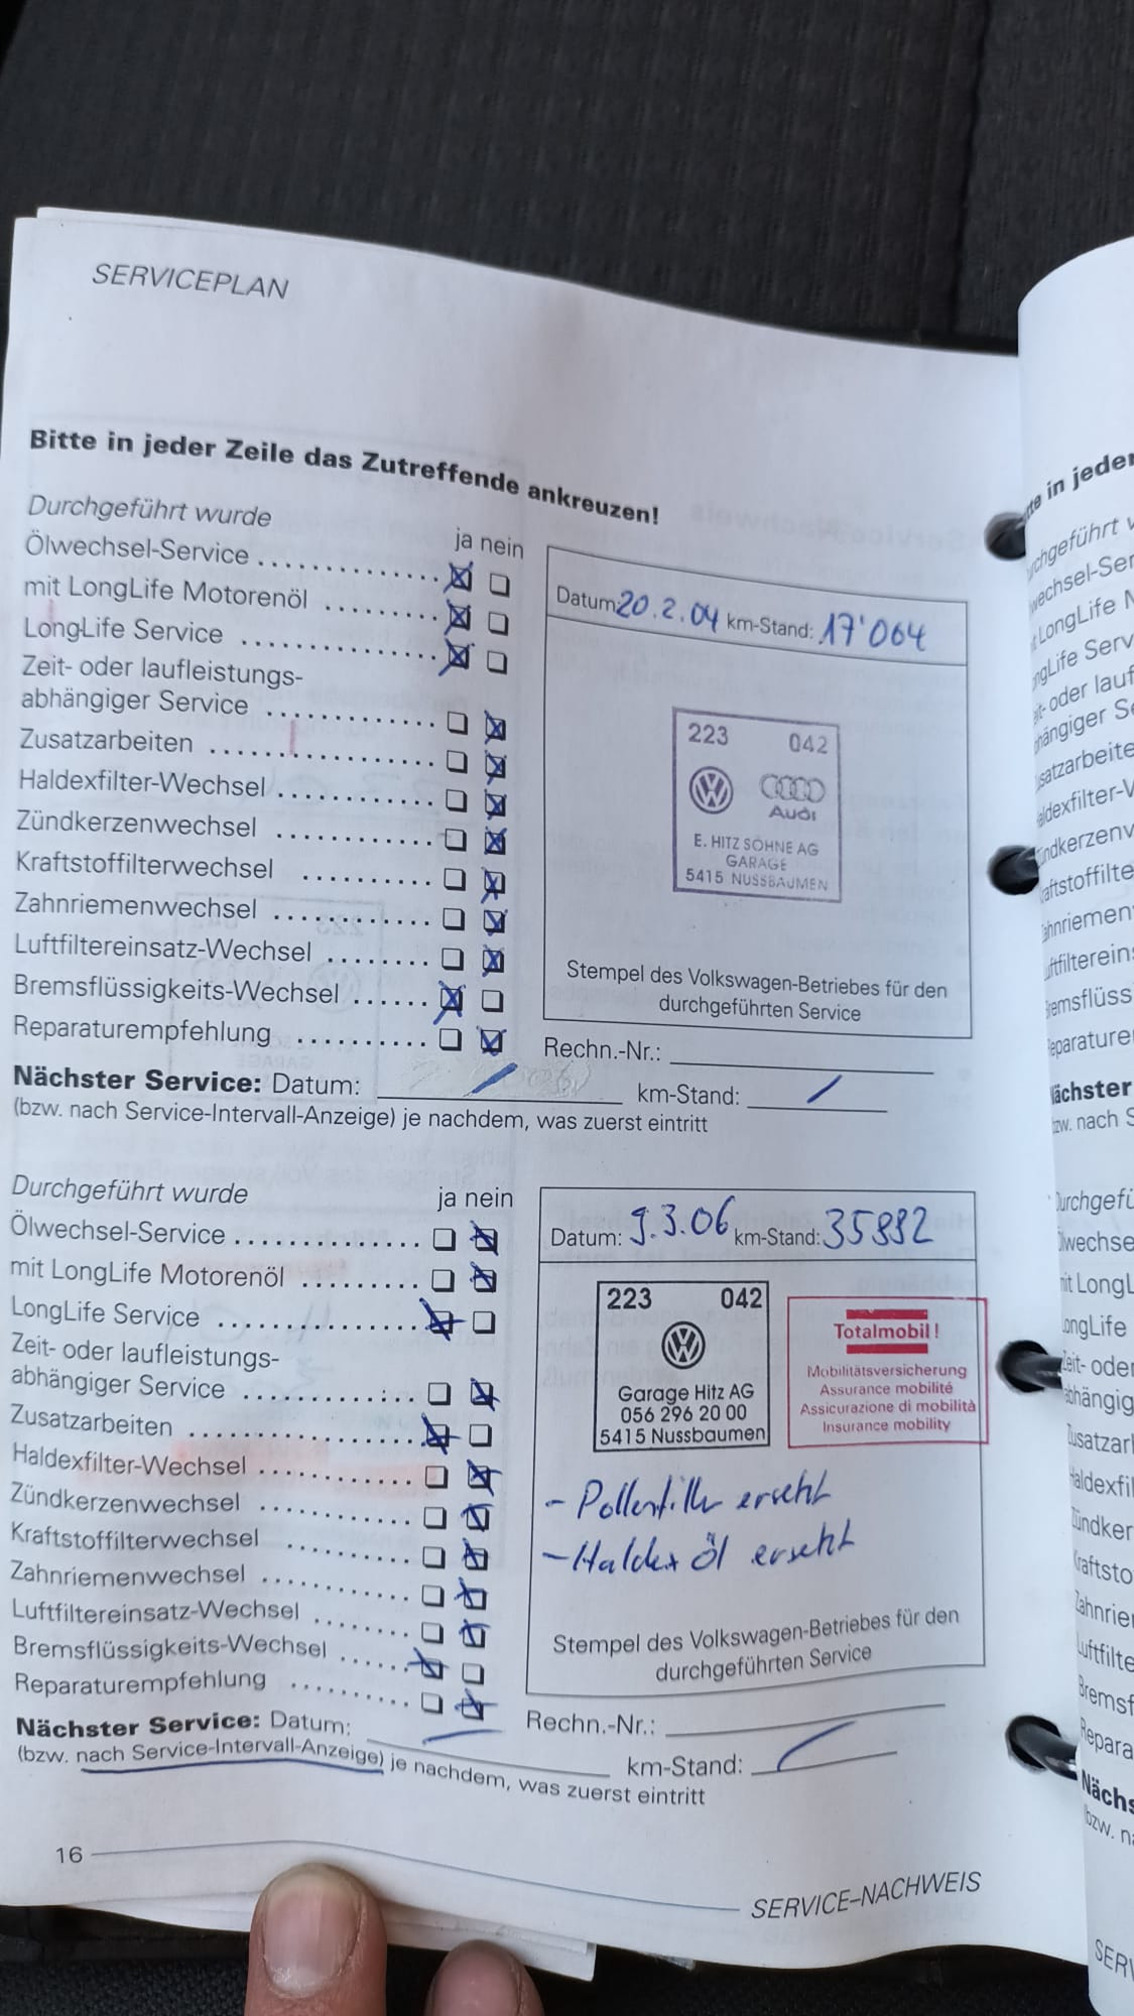 SERVICEPLAN
Bitte in jeder Zeile das Zutreffende ankreuzen!
Durchgeführt wurde
ja nein
Ölwechsel-Service
mit LongLife Motorenöl
LongLife Service
Zeit- oder laufleistungs-
abhängiger Service
Zusatzarbeiten
Haldexfilter-Wechsel
Zündkerzenwechsel
Kraftstoffilterwechsel
Zahnriemenwechsel
Luftfiltereinsatz-Wechsel
Bremsflüssigkeits-Wechsel
Reparaturempfehlung
Datum 20.2.04 km-Stand: 17'064
223 042
Audi
E. HITZ SÖHNE AG
GARAGE
5415 NUSSBAUMEN
Stempel des Volkswagen-Betriebes für den
durchgeführten Service
Rechn.-Nr.:
Nächster Service: Datum: km-Stand:
(bzw. nach Service-Intervall-Anzeige) je nachdem, was zuerst eintritt
Durchgeführt wurde
ja nein
Ölwechsel-Service
mit LongLife Motorenöl
LongLife Service
Zeit- oder laufleistungs-
abhängiger Service
Zusatzarbeiten
Haldexfilter-Wechsel
Zündkerzenwechsel
Kraftstoffilterwechsel
Zahnriemenwechsel
Luftfiltereinsatz-Wechsel
Bremsflüssigkeits-Wechsel
Reparaturempfehlung
Datum: 9.3.06 km-Stand: 35882
223 042
Garage Hitz AG
056 296 20 00
5415 Nussbaumen
Totalmobil!
Mobilitätsversicherung
Assurance mobilité
Assicurazione di mobilità
Insurance mobility
- Pollenfilter ersetzt
- Haldex Öl ersetzt
Stempel des Volkswagen-Betriebes für den
durchgeführten Service
Rechn.-Nr.:
Nächster Service: Datum: km-Stand:
(bzw. nach Service-Intervall-Anzeige) je nachdem, was zuerst eintritt
16
SERVICE-NACHWEIS